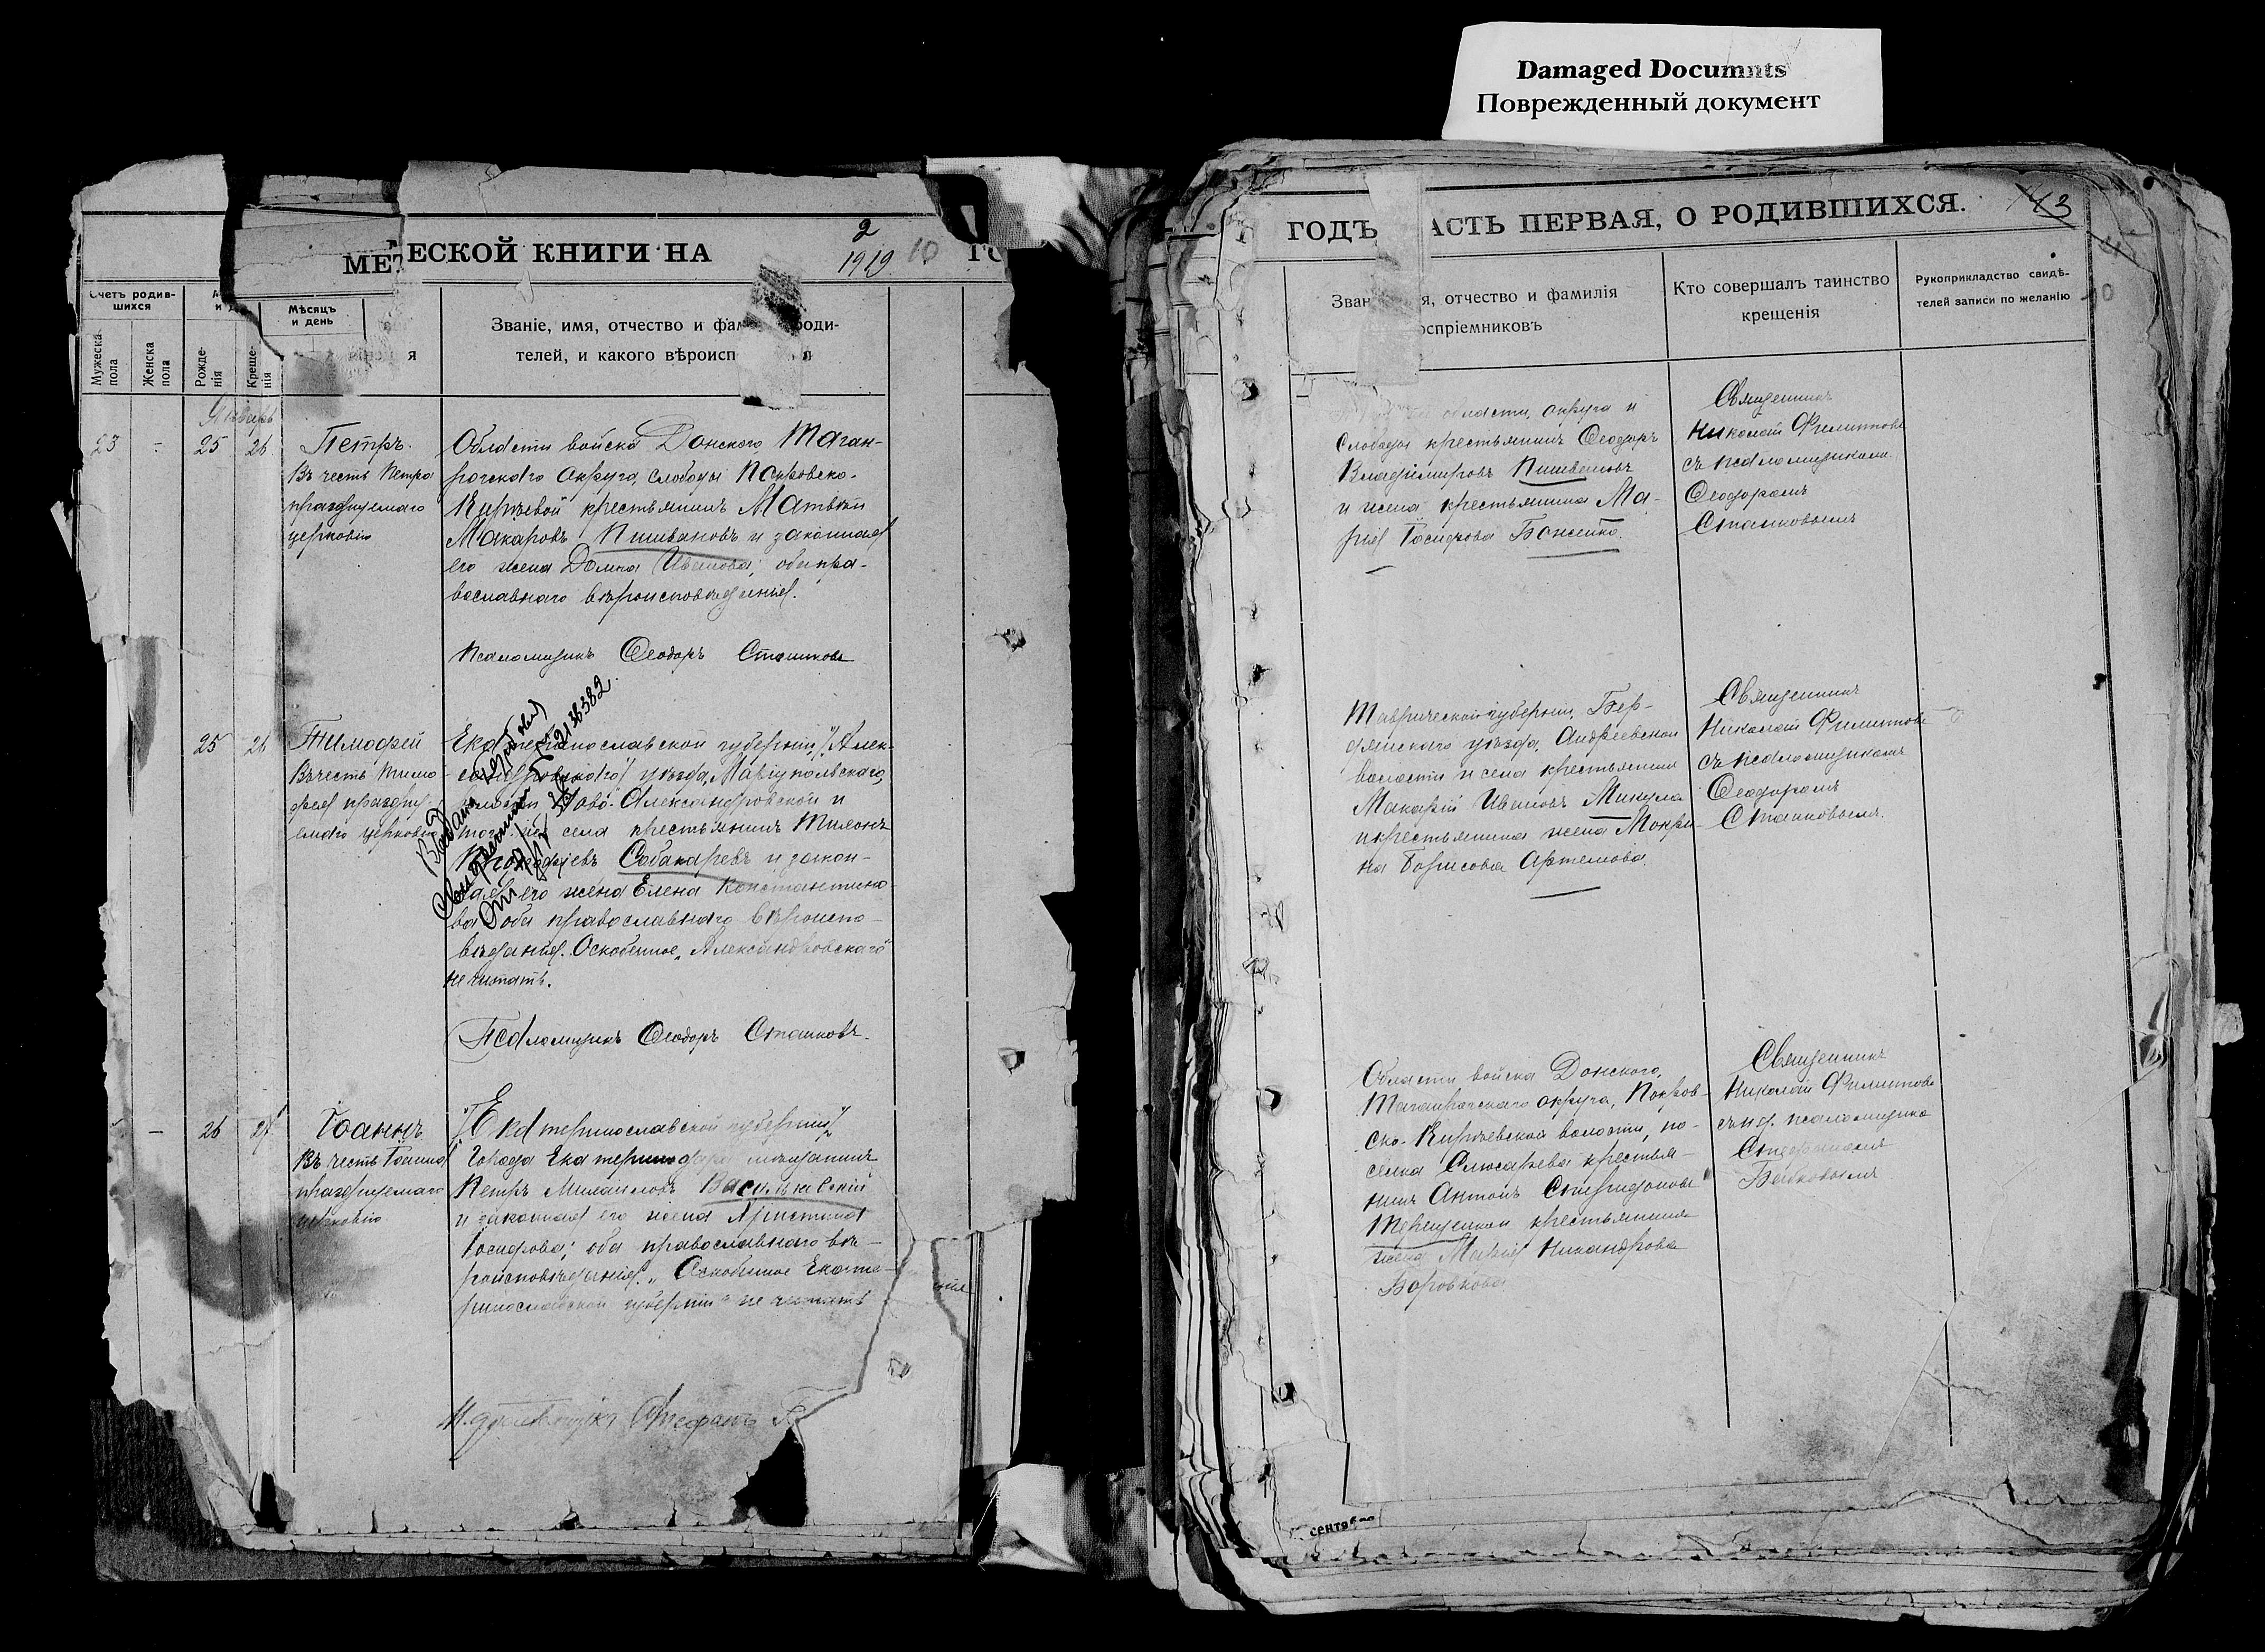 Damaged Documnts
Поврежденный документ
МЕТ ЕСКОЙ КНИГИ НА
2
1919
10
ГО
Счетъ родив-
шихся
Мужеска
пола
Женска
пола
Рожде-
нія
Креще-
нія
Мѣсяцъ
и день
Званіе, имя, отчество и фам роди-
телей, и какого вѣроисп
Январь
23 - 25 26
Петръ.
Въ честь Петра
празднуемаго
церковію
Области войска Донского Таган-
рогскаго округа, слободы Покровско-
Кирѣевой крестьянинъ Матвѣй
Макаровъ Пишвановъ и законная
его жена Домна Иванова; оба пра-
вославнаго вѣроисповѣданія.
Псаломщикъ Ѳеодоръ Сташковъ
25 26
Тимофей
Въ честь Тимо-
фея праздну-
емаго церковію
Екатеринославской губерніи, "Алек-
уѣзда, Маріупольскаго,
Ново-Александровской и
села крестьянинъ Тихонъ
Собакаревъ и закон-
ная его жена Елена Константино-
ва оба православнаго вѣроиспо-
вѣданія. Оскобленное "Александровскаго"
не читать.
Псаломщикъ Ѳеодоръ Сташковъ.
- 26 27
Іоаннъ
Въ честь Іоанна
празднуемаго
церковію
"Екатеринославской губерніи"
города мѣщанинъ
Петръ Михайловъ Васильевскій
и законная его жена Христина
Іосифова; оба православнаго вѣ-
роисповѣданія. "Оскобленное Екате-
ринославской губерніи" не читать
Стефанъ
ГОДЪ АСТЬ ПЕРВАЯ, О РОДИВШИХСЯ.
Зван я, отчество и фамилія
оспріемниковъ
Кто совершалъ таинство
крещенія
Рукоприкладство свидѣ-
телей записи по желанію
области, округа и
слободы крестьянинъ Ѳеодоръ
Владиміровъ Пишвановъ
и жена крестьянина Ма-
рія Іосифова Боженко.
Священникъ
Николай Филипповъ
съ псаломщикомъ
Ѳеодоромъ
Сташковымъ
Таврической губерніи, Бер-
дянскаго уѣзда, Андреевской
волости и села крестьянинъ
Макарій Ивановъ Микула
и крестьянина жена Мокри-
на Борисова Артемова.
Священникъ
Николай Филипповъ
съ псаломщикомъ
Ѳеодоромъ
Сташковымъ.
Области войска Донского,
Таганрогскаго округа, Покров-
ско-Кирѣевской волости, по-
селка Слюсарева крестья-
нинъ Антонъ Спиридоновъ
Терещенко и крестьянина
жена Марія Никандрова
Боровкова
Священникъ
Николай Филипповъ
съ и.д. псаломщика
Стефаномъ
сентябр